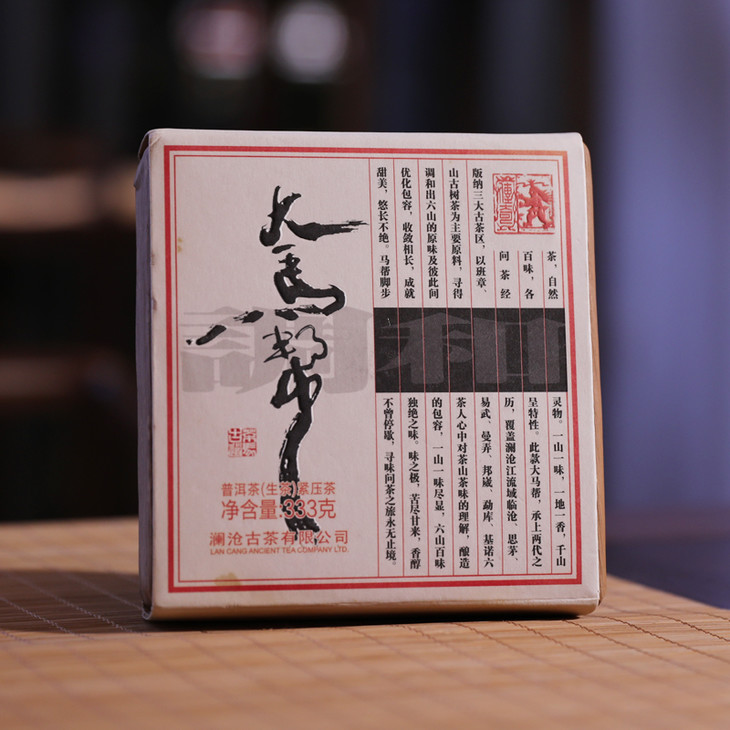 大馬幫
調和
茶，自然灵物。一山一味，一地一香，千山
百味，各呈特性。此款大马帮，承上两代之
问茶经历，覆盖澜沧江流域临沧、思茅、
版纳三大古茶区，以班章、易武、曼弄、邦崴、勐库、基诺六
山古树茶为主要原料，寻得茶人心中对茶山茶味的理解，酿造
调和出六山的原味及彼此间的包容，一山一味尽显，六山百味
优化包容，收敛相长，成就独绝之味。味之极，苦尽甘来，香醇
甜美，悠长不绝。马帮脚步不曾停歇，寻味问茶之旅永无止境。
普洱茶(生茶)紧压茶
净含量:333克
澜沧古茶有限公司
LAN CANG ANCIENT TEA COMPANY LTD.